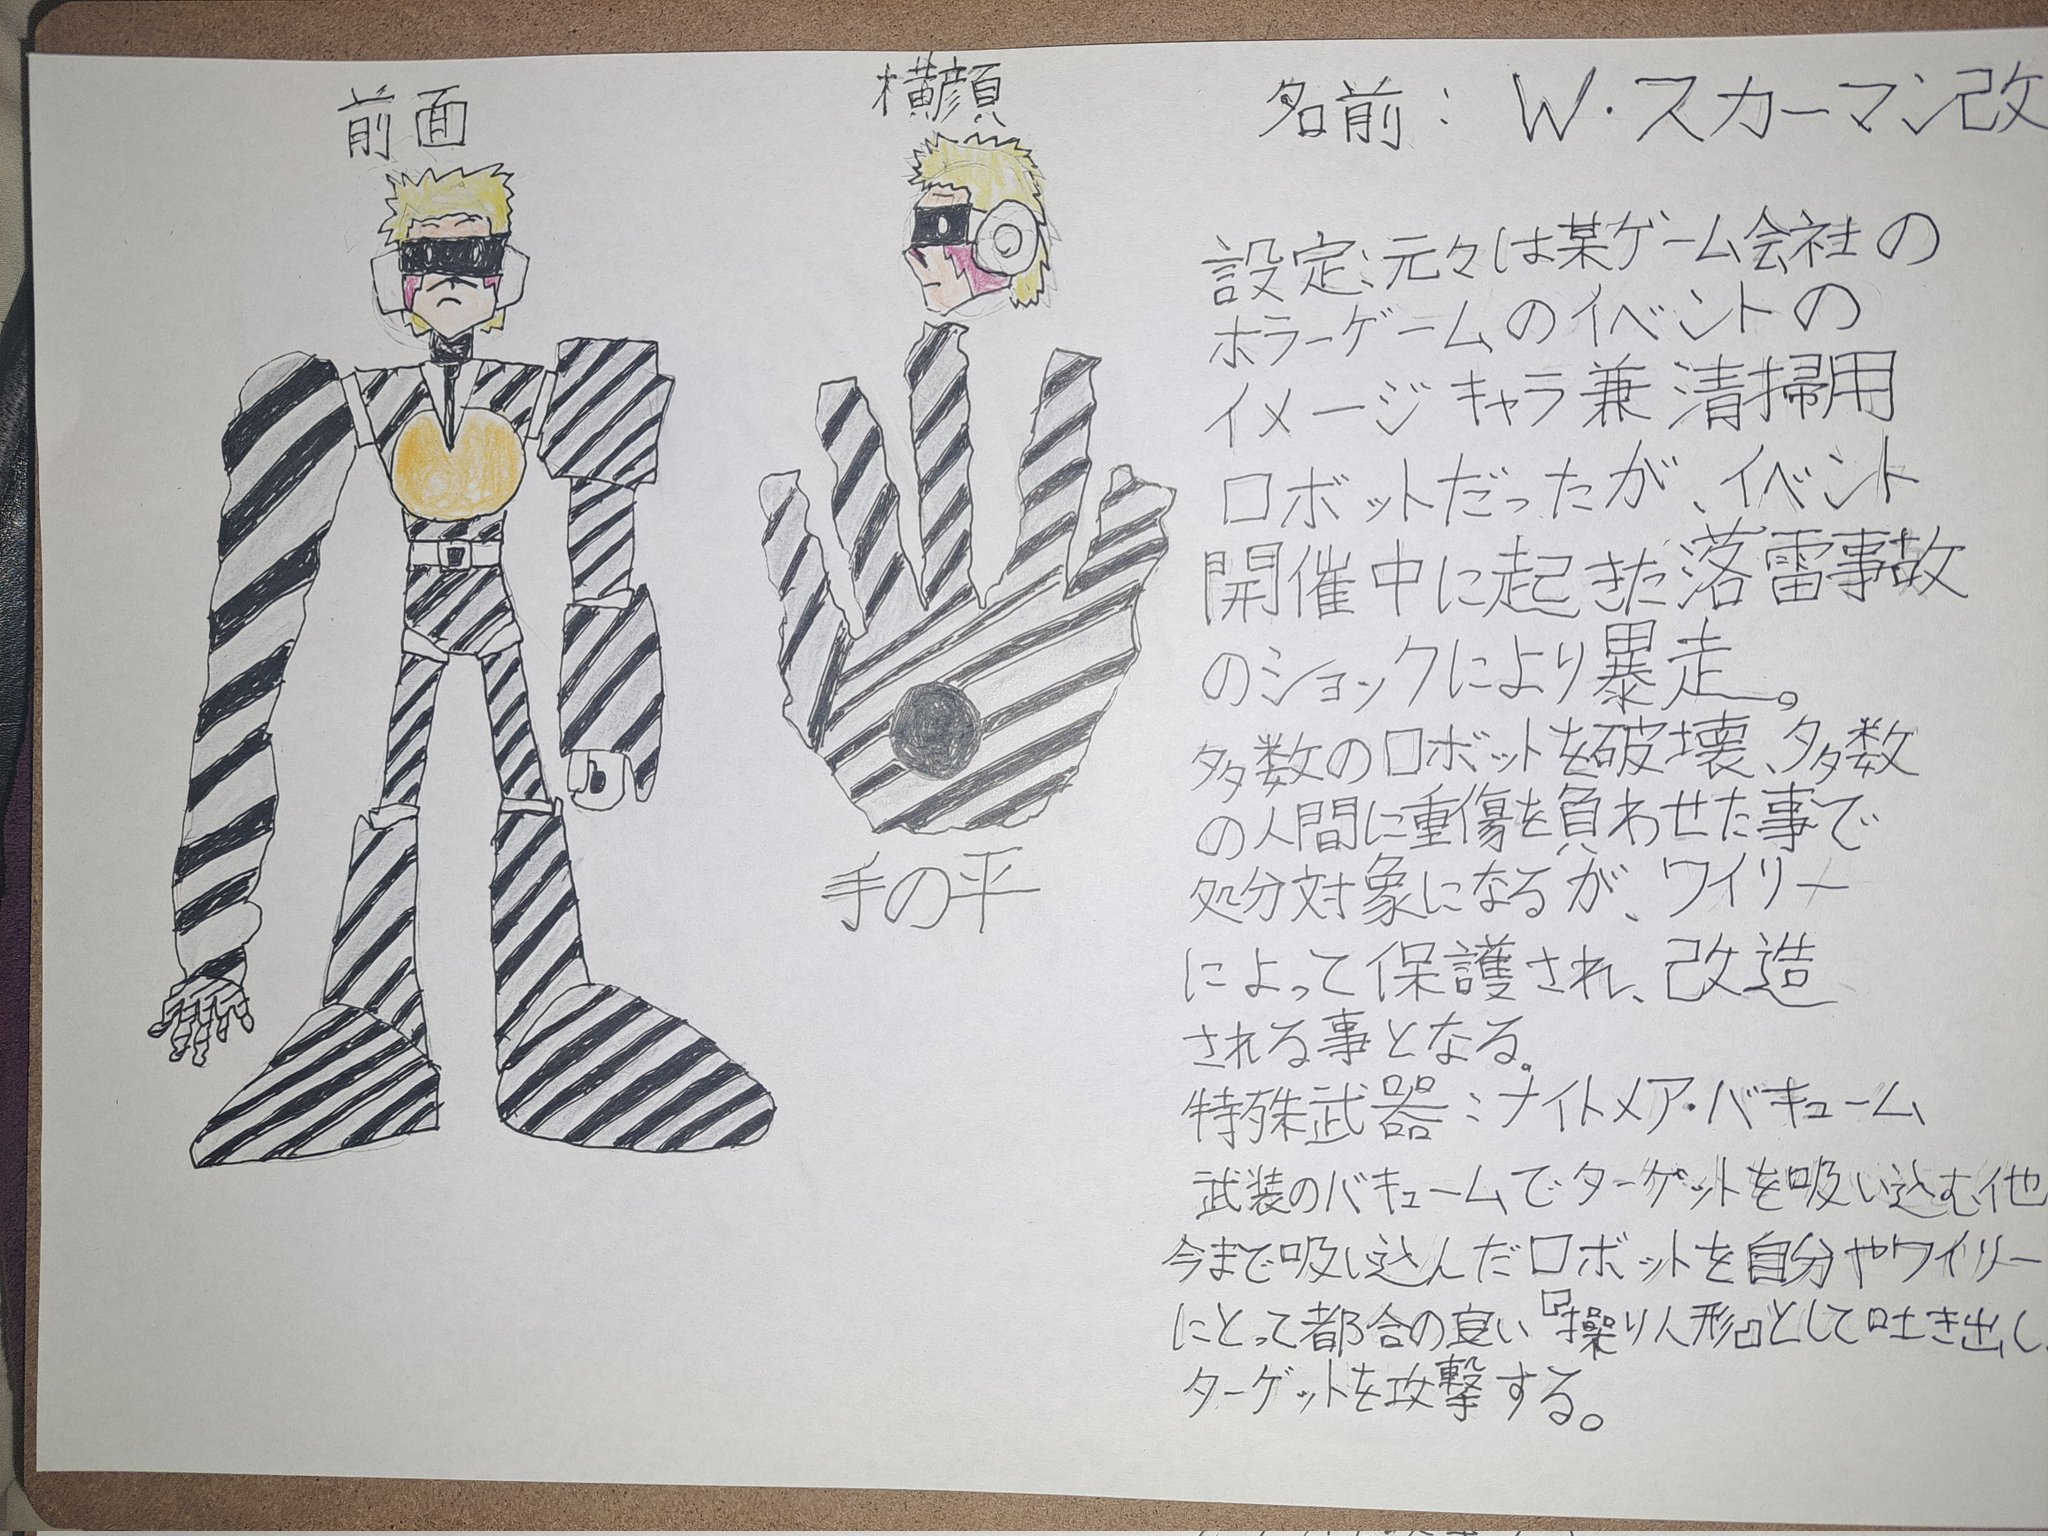 前面
横顔
手の平
名前：W・スカーマン改
設定：元々は某ゲーム会社の
ホラーゲームのイベントの
イメージキャラ兼清掃用
ロボットだったが、イベント
開催中に起きた落雷事故
のショックにより暴走。
多数のロボットを破壊、多数
の人間に重傷を負わせた事で
処分対象になるが、ワイリー
によって保護され、改造
される事となる。
特殊武器：ナイトメア・バキューム
武装のバキュームでターゲットを吸い込む他
今まで吸い込んだロボットを自分やワイリー
にとって都合の良い『操り人形』として吐き出し、
ターゲットを攻撃する。